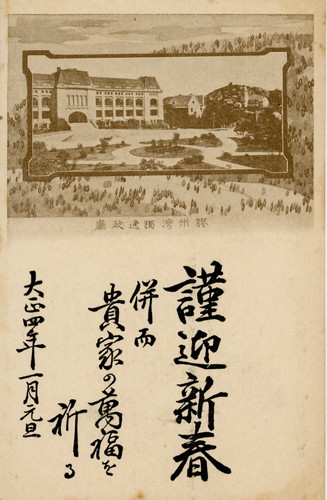 膠州灣獨逸政廳
謹迎新春
併而
貴家の萬福を
祈る
大正四年一月元旦